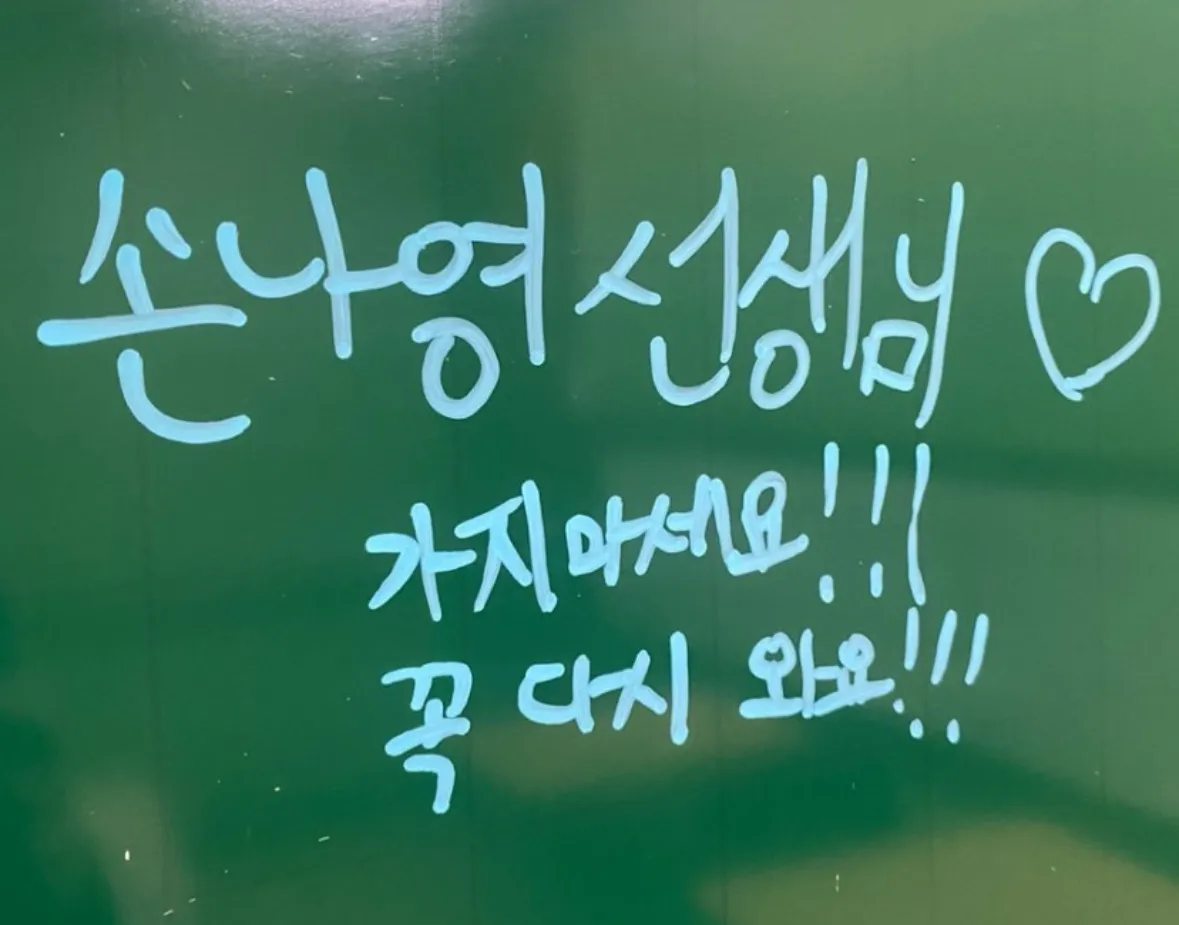 손나영 선생님 ♡
가지마세요!!!
꼭 다시 와요!!!